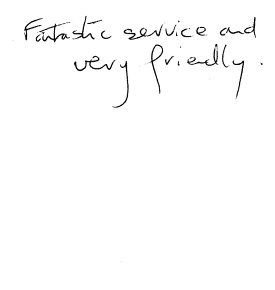 Fantastic service and
very friendly.